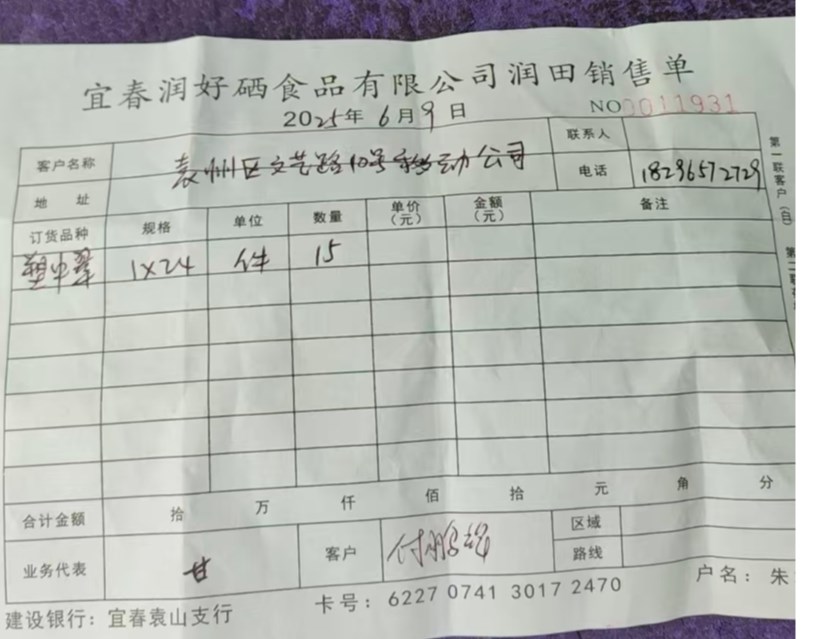 宜春润好硒食品有限公司润田销售单
2025年 6月9日 NO0011931
客户名称 袁州区文艺路10号移动公司 联系人
地址 电话 18296572729
订货品种 规格 单位 数量 单价（元） 金额（元） 备注
1X24 件 15
合计金额 拾 万 仟 佰 拾 元 角 分
业务代表 甘 客户 区域
路线
建设银行：宜春袁山支行 卡号：6227 0741 3017 2470 户名：朱
第一联客户（白）